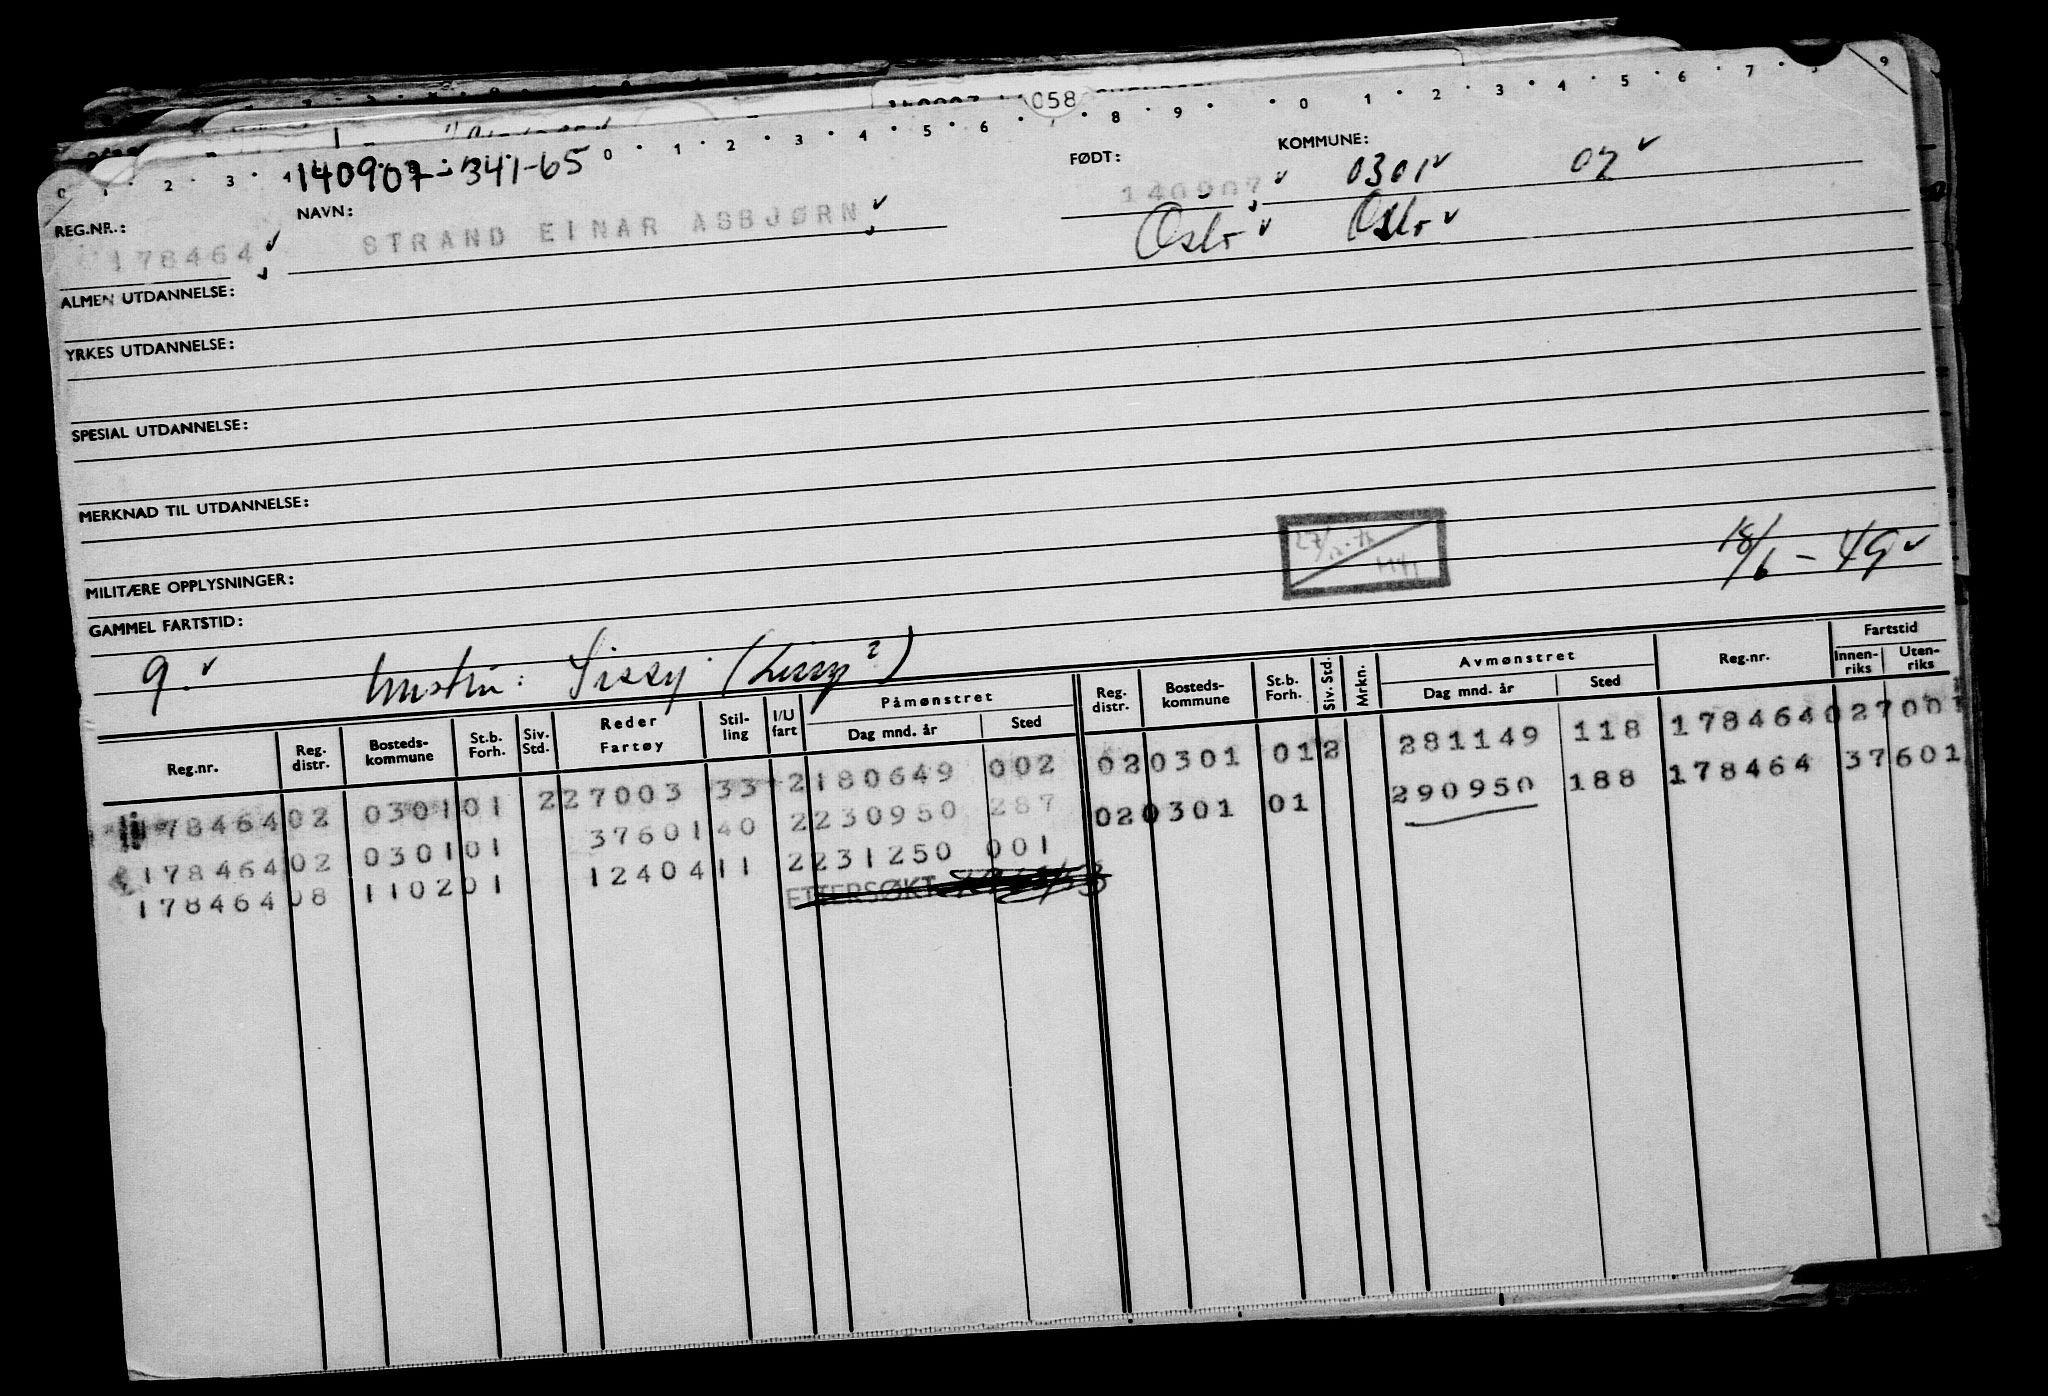 058
0 1 2 3 4 5 6 7 8 9
140907-341-65
FØDT: KOMMUNE:
140907 0301 02
REG.NR.: NAVN:
178464 STRAND EINAR ASBJØRN Oslo Oslo
ALMEN UTDANNELSE:
YRKES UTDANNELSE:
SPESIAL UTDANNELSE:
MERKNAD TIL UTDANNELSE:
MILITÆRE OPPLYSNINGER:
18/6 - 49
GAMMEL FARTSTID:
9. Hustru: Sissy (Lissy?)
Reg.nr. Reg. distr. Bosteds-kommune St.b. Forh. Siv. Std. Reder Fartøy Stil-ling I/U fart Påmønstret Dag mnd. år Sted Reg. distr. Bosteds-kommune St.b. Forh. Siv. Std. Mrkn. Avmønstret Dag mnd. år Sted Reg.nr. Fartstid Innen-riks Uten-riks
178464 02 0301 01 2 27003 33 2 180649 002 02 0301 01 2 281149 118 178464 027001
178464 02 0301 01 37601 40 2 230950 287 02 0301 01 290950 188 178464 37601
178464 08 1102 01 12404 11 2 231250 001
ETTERSØKT